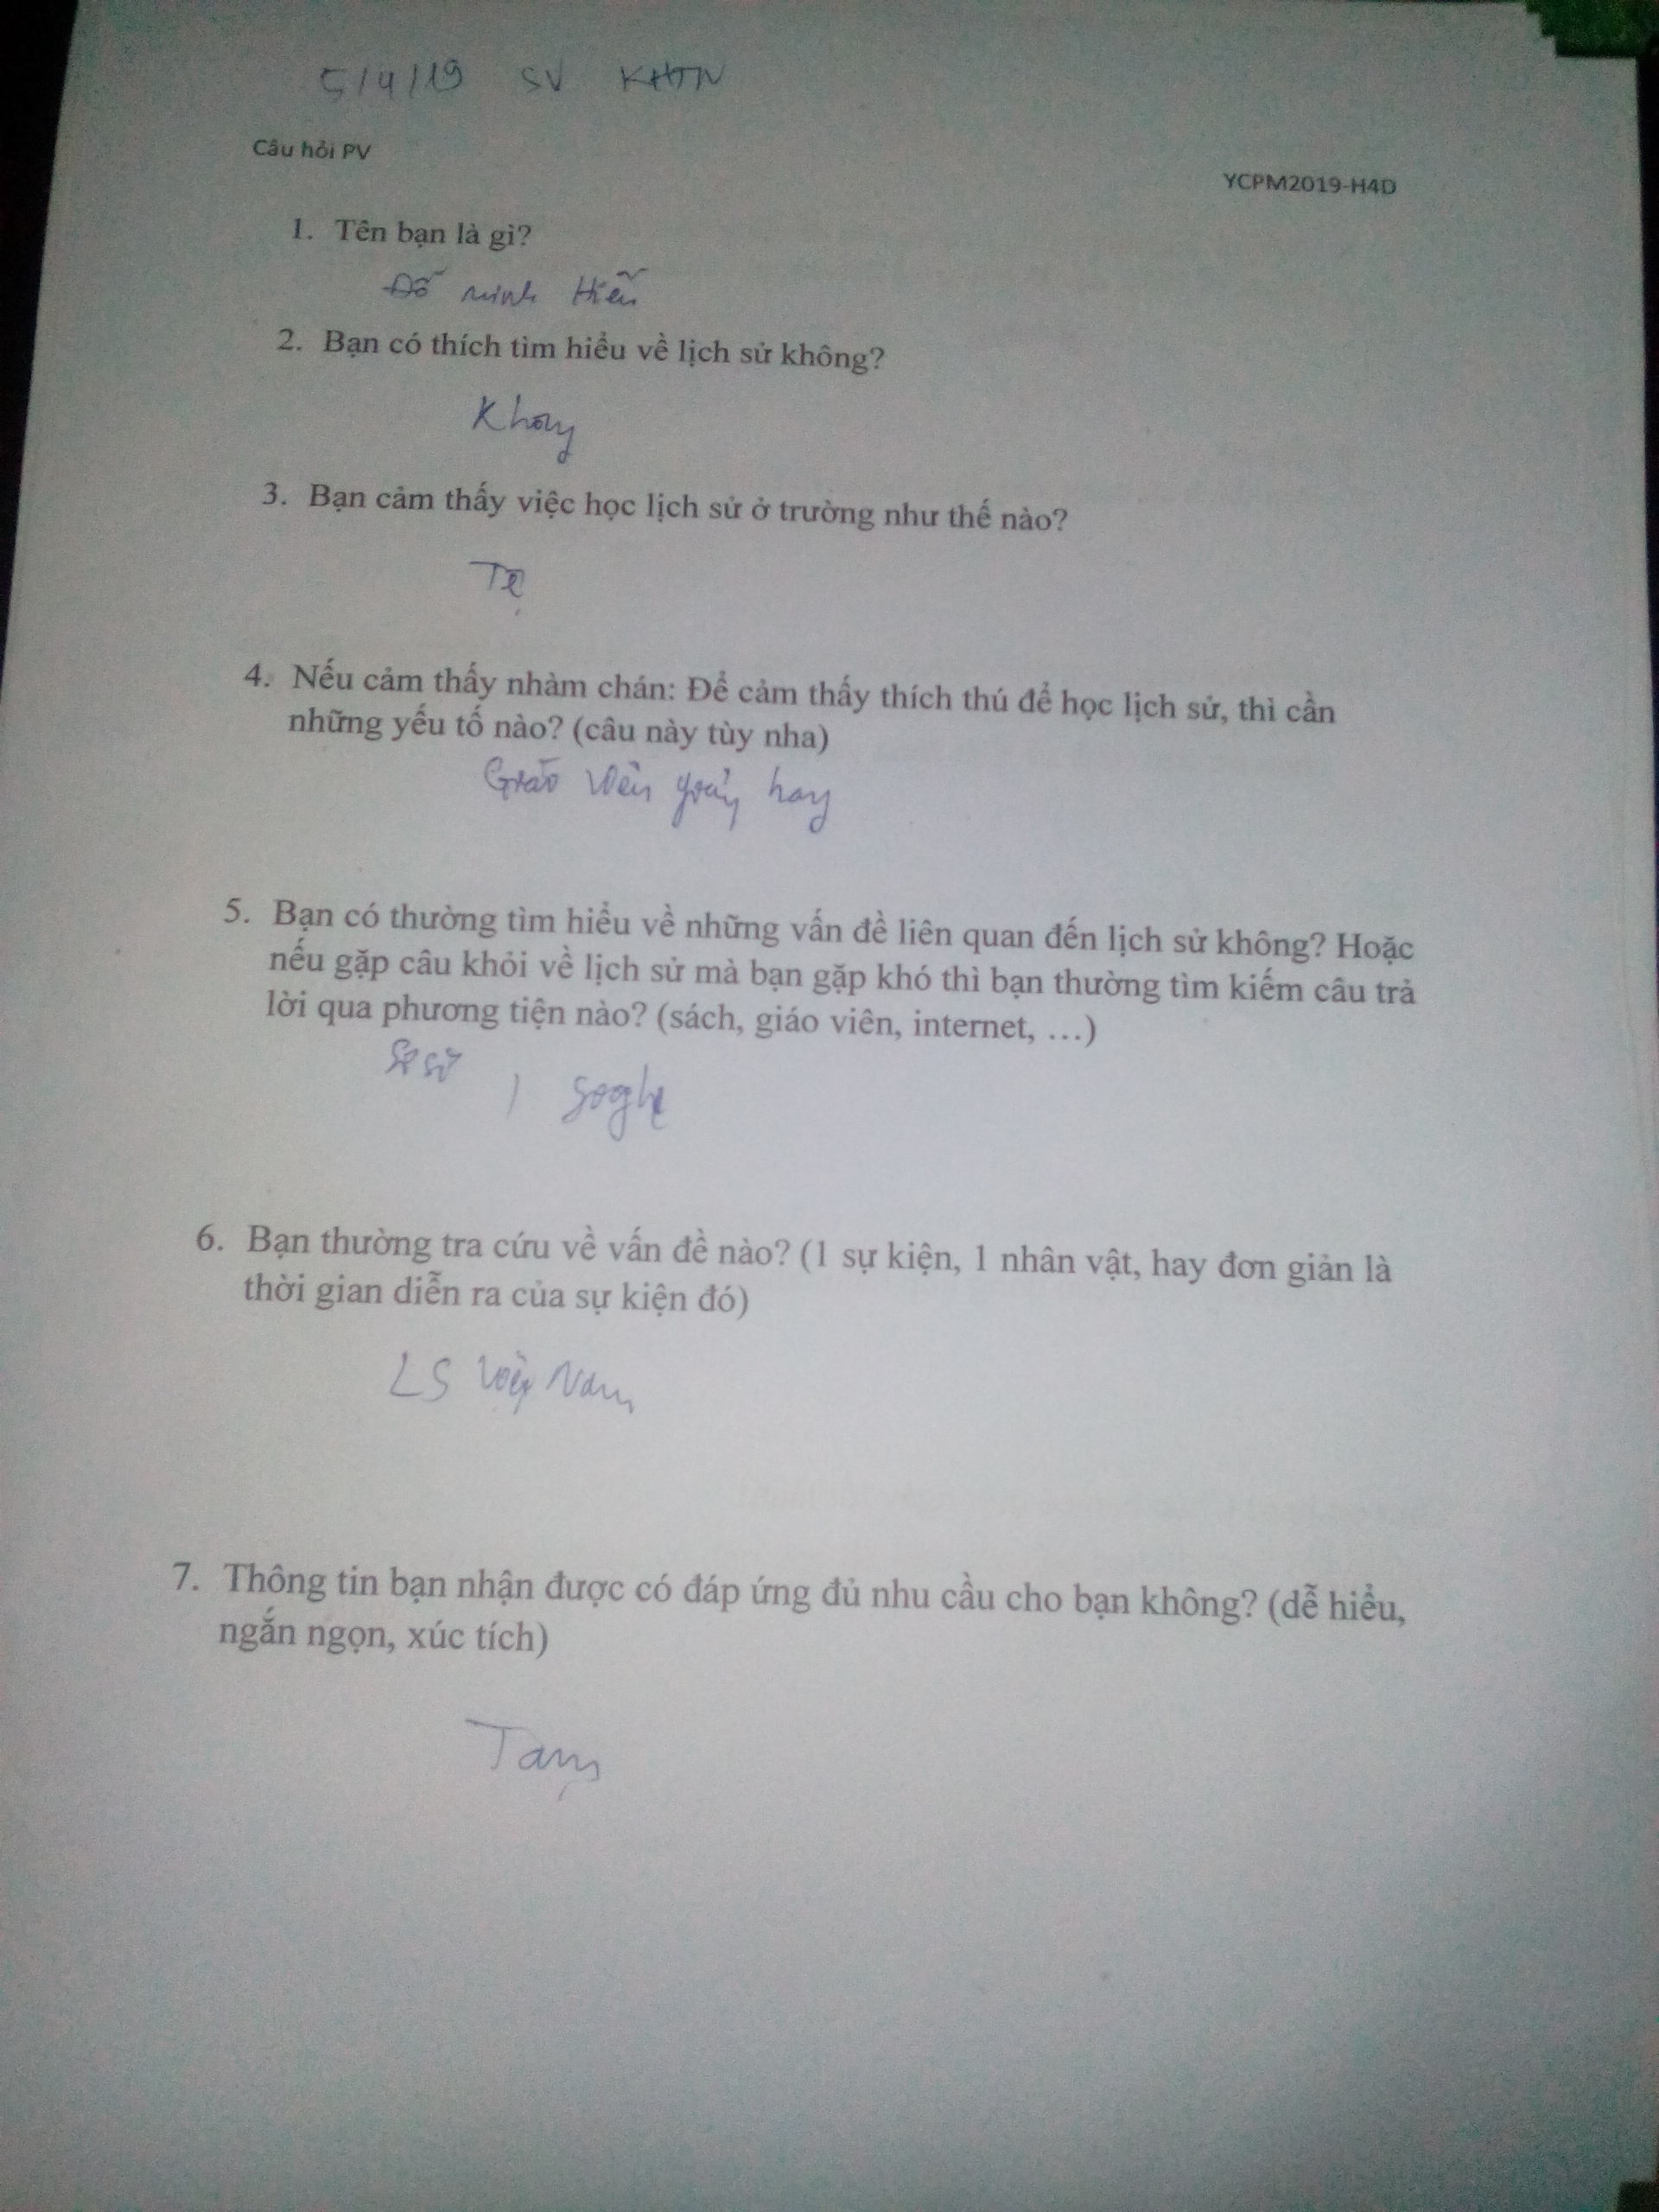 5/4/19 SV KHTN
Câu hỏi PV
YCPM2019-H4D
1. Tên bạn là gì?
Đỗ minh Hiễn
2. Bạn có thích tìm hiểu về lịch sử không?
Không
3. Bạn cảm thấy việc học lịch sử ở trường như thế nào?
Tệ
4. Nếu cảm thấy nhàm chán: Để cảm thấy thích thú để học lịch sử, thì cần
những yếu tố nào? (câu này tùy nha)
Giáo viên giảng hay
5. Bạn có thường tìm hiểu về những vấn đề liên quan đến lịch sử không? Hoặc
nếu gặp câu khỏi về lịch sử mà bạn gặp khó thì bạn thường tìm kiếm câu trả
lời qua phương tiện nào? (sách, giáo viên, internet, …)
6. Bạn thường tra cứu về vấn đề nào? (1 sự kiện, 1 nhân vật, hay đơn giản là
thời gian diễn ra của sự kiện đó)
LS Việt Nam
7. Thông tin bạn nhận được có đáp ứng đủ nhu cầu cho bạn không? (dễ hiểu,
ngắn ngọn, xúc tích)
Tạm